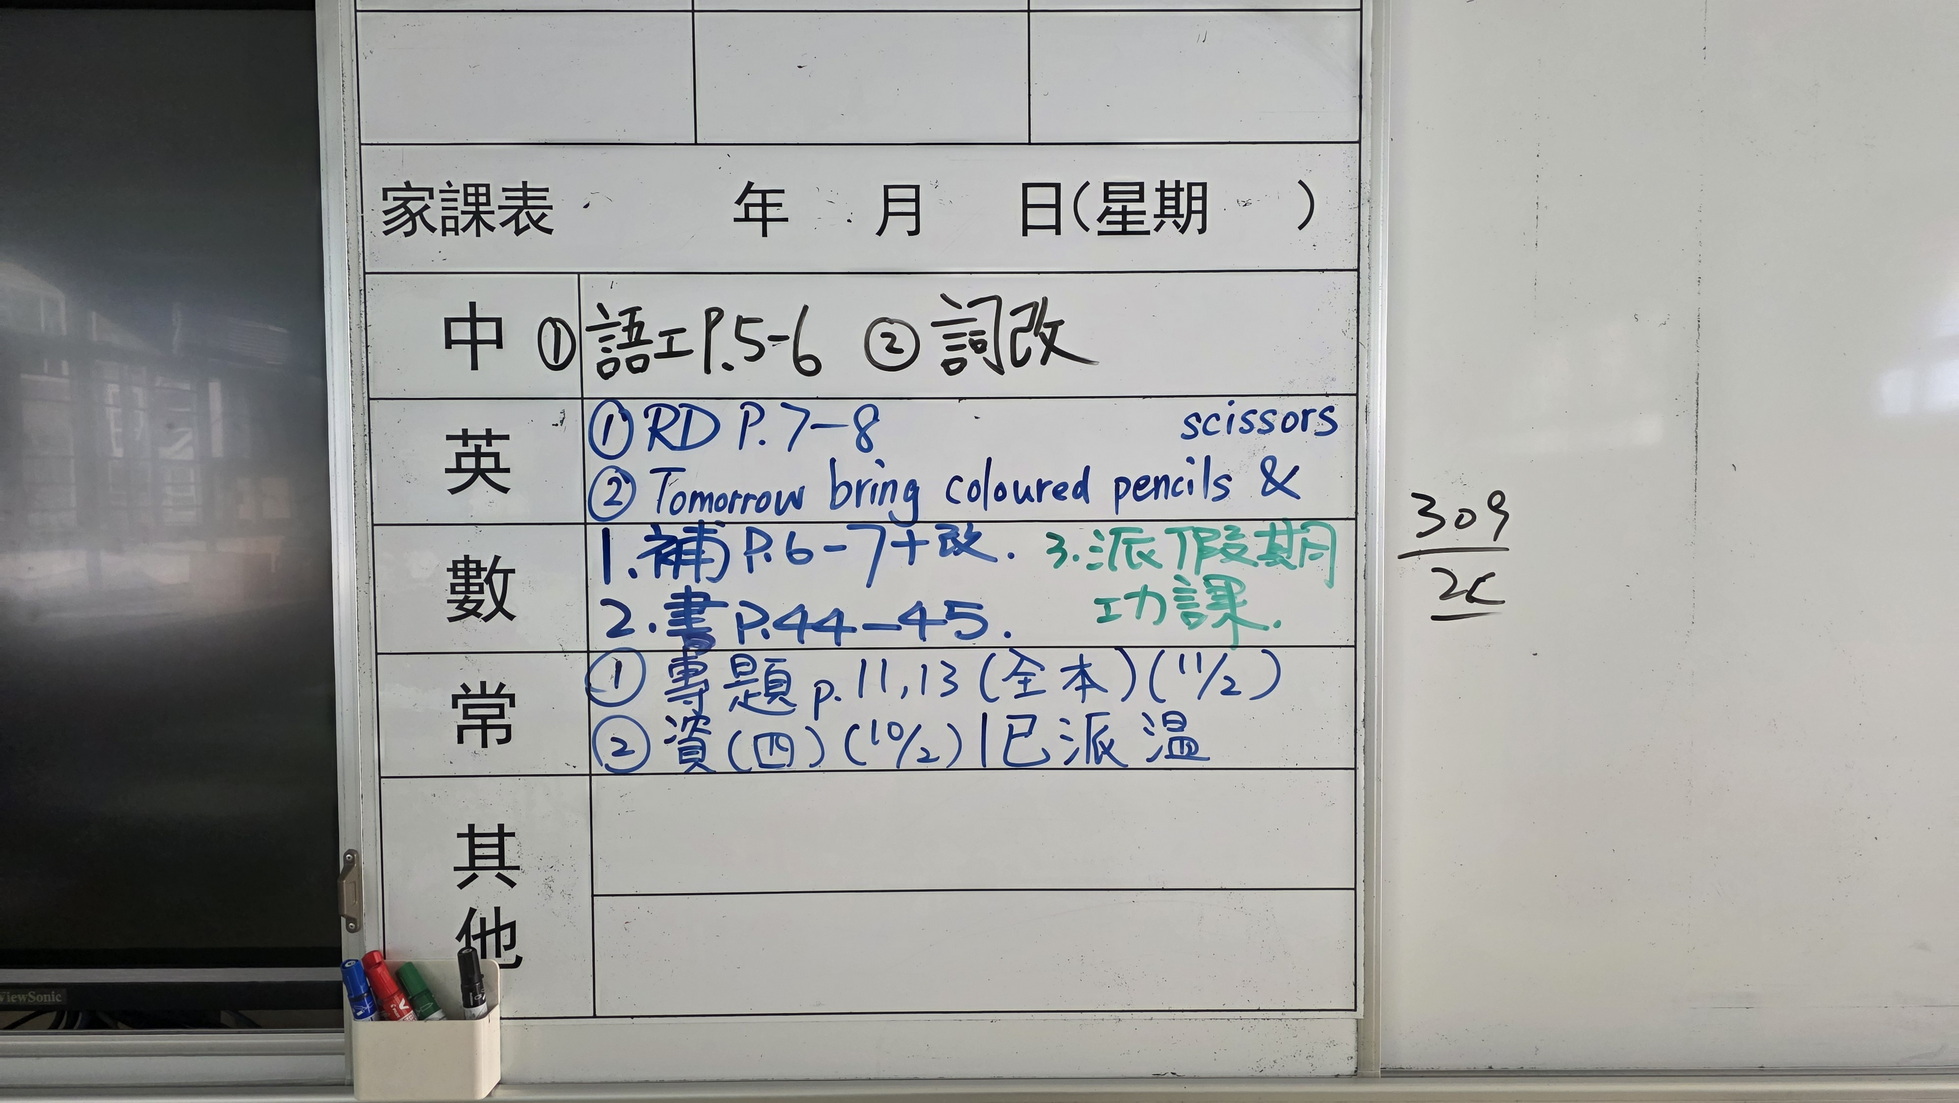 家課表 年 月 日(星期 )
中 ①語工P.5-6 ②詞改
英
①RD P.7-8 scissors
②Tomorrow bring coloured pencils &
數
1.補P.6-7+改. 3.派假期
功課.
2.書P.44-45.
常
①專題p.11,13(全本)(11/2)
②資(四)(10/2)|已派溫
其
他
309
2C
ViewSonic